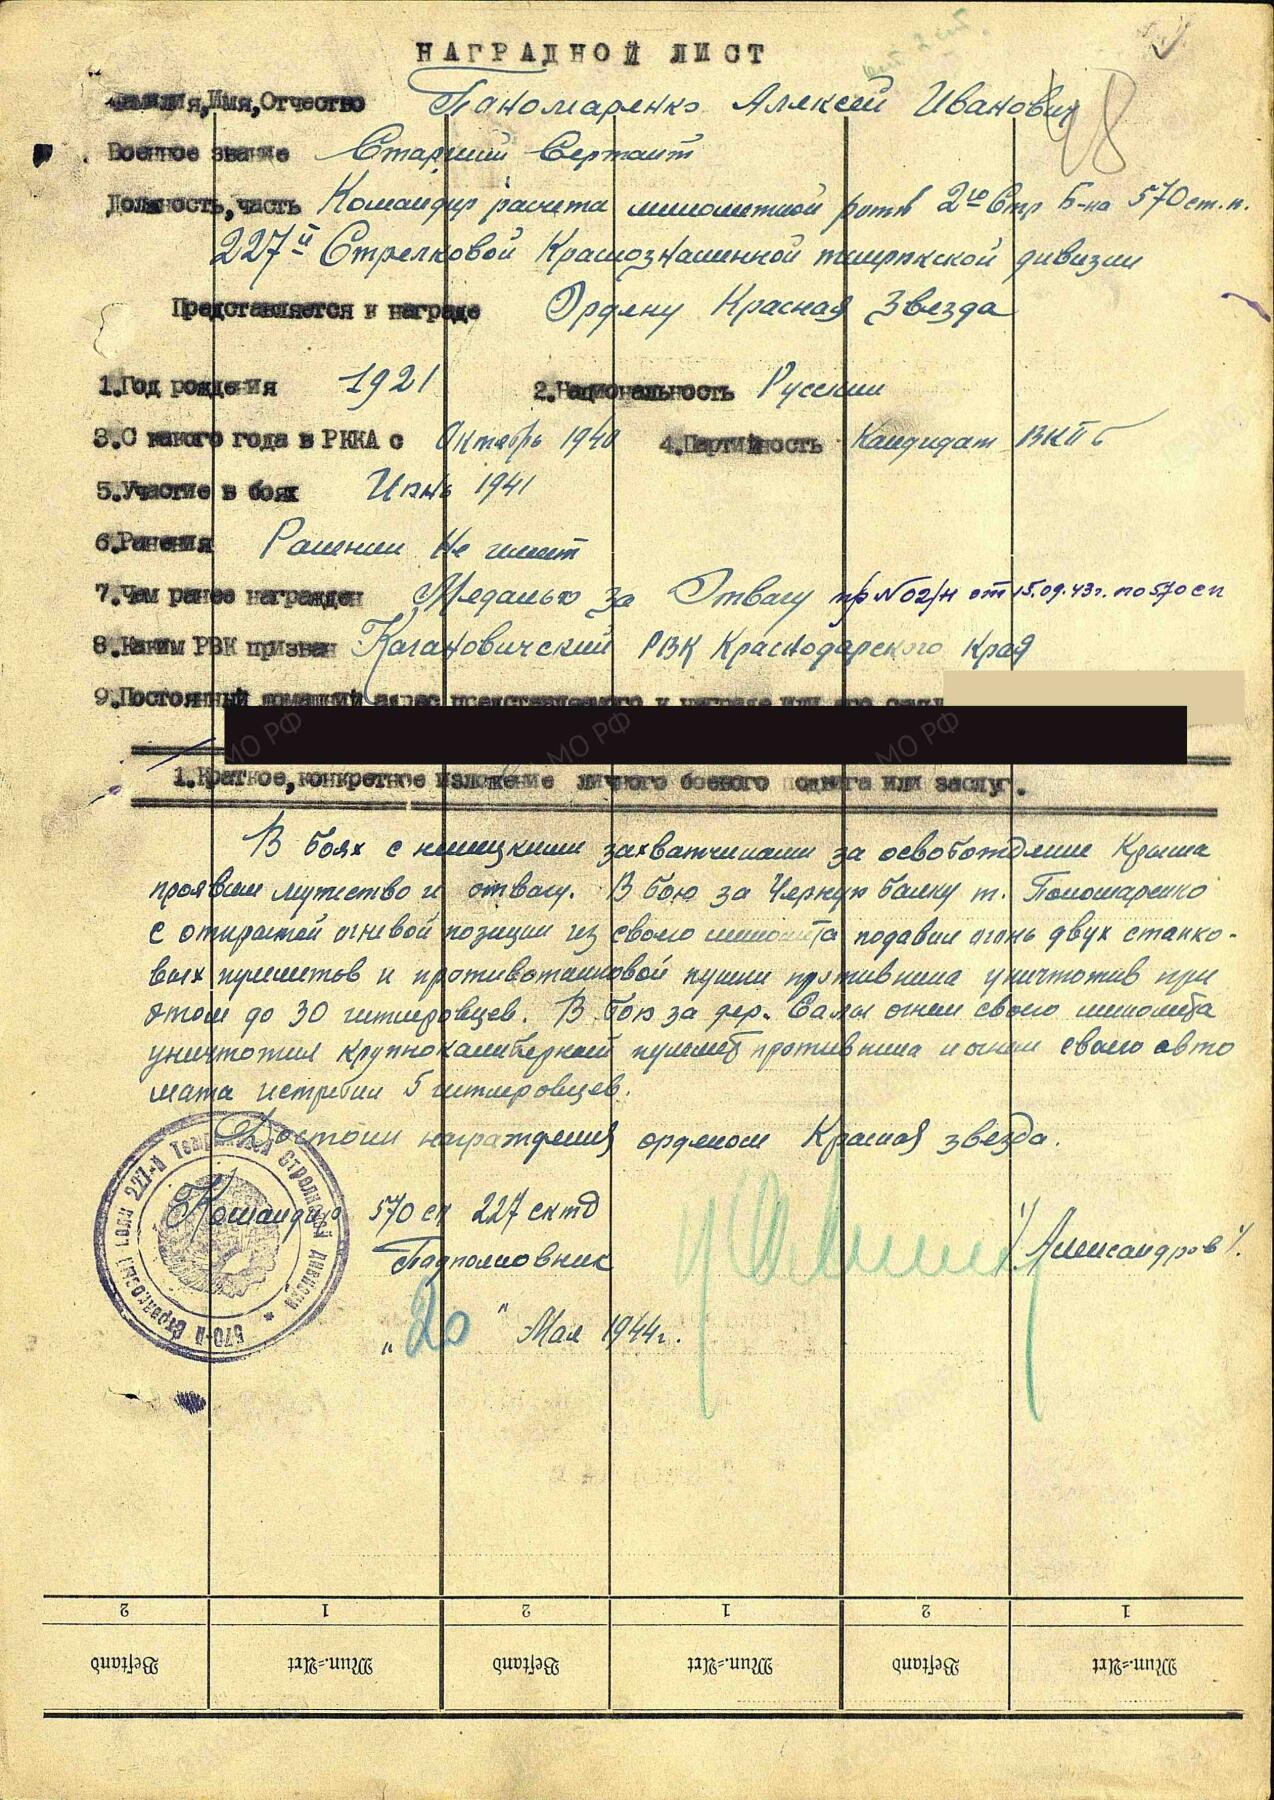 НАГРАДНОЙ ЛИСТ
Фамилия, Имя, Отчество Пономаренко Алексей Иванович
48
Военное звание Старший Сержант
Должность, часть Командир расчета минометной роты 2го Стр Б-на 570 ст. п.
227й Стрелковой Краснознаменной темрюкской дивизии
Представляется к награде Ордену Красная Звезда
1.Год рождения 1921 2.Национальность Русский
3.С какого года в РККА с Октябрь 1940 4.Партийность Кандидат ВКПб
5.Участие в боях Июнь 1941
6.Ранения Ранении Не имеет
7.Чем ранее награжден Медалью за Отвагу пр №02/н от 15.09.43г. по 570 сп
8.Каким РВК призван Кагановичский РВК Краснодарского Края
9.Постоянный домашний адрес представляемого к награде или его семьи
МО РФ МО РФ МО РФ
1.Краткое, конкретное изложение личного боевого подвига или заслуг.
В боях с немецкими захватчиками за освобождение Крыма
проявил мужество и отвагу. В бою за Черную балку т. Пономаренко
с открытой огневой позиции из своего миномета подавил огонь двух станко-
вых пулеметов и противотанковой пушки противника уничтожив при
этом до 30 гитлеровцев. В бою за дер. Салы огнем своего миномета
уничтожил крупнокалиберный пулемет противника и огнем своего авто
мата истребил 5 гитлеровцев.
Достоин награждения орденом Красная звезда.
Командир 570 сп 227 сктд
Подполковник /Александров/.
"20" Мая 1944г.
570-й Стрелковый полк 227-й Темрюкской Стрелковой дивизии
2 1 2 1 2 1
Bestand Mun.=Art Bestand Mun.=Art Bestand Mun.=Art